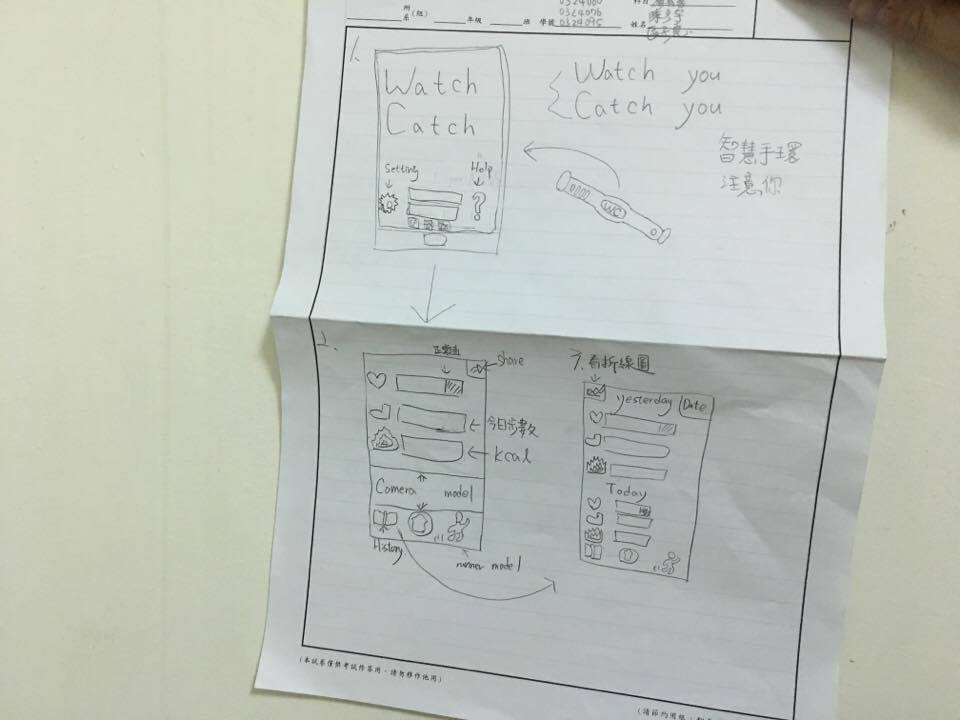 所
系(組)
年級
班
學號
0324076
0324095
科目
姓名
1.
Watch
Catch
Setting
Help
?
Watch you
Catch you
WC
智慧手環
注意你
2.
share
今日步數
kcal
Camera model
History
runner model
看折線圖
yesterday
Date
Today
(本試卷僅供考試作答用，請勿移作他用)